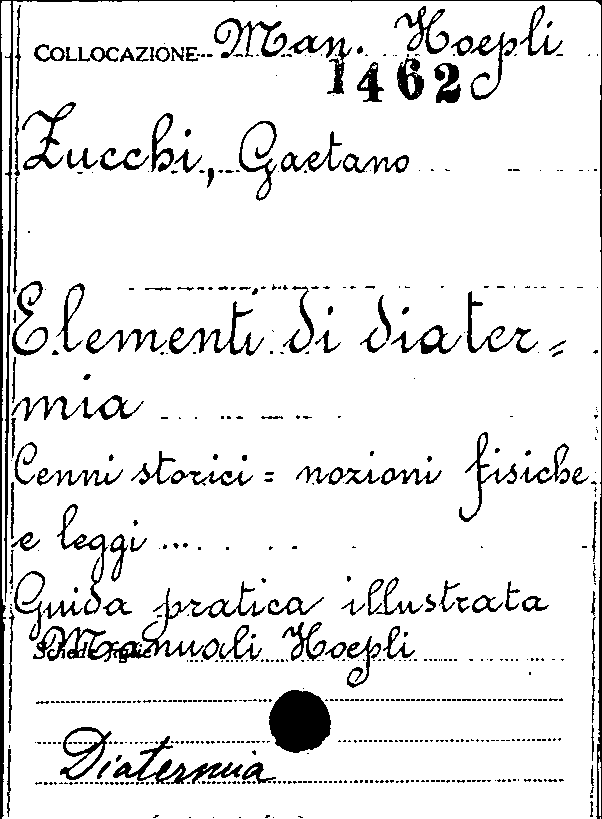 COLLOCAZIONE Man. Hoepli
1462
Zucchi, Gaetano
Elementi di diater=
mia
Cenni storici = nozioni fisiche
e leggi ...
Guida pratica illustrata
Manuali Hoepli
Diatermia